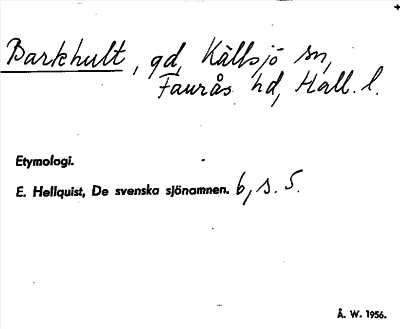 Barkhult, gd, Källsjö sn,
Faurås hd, Hall. l.
Etymologi.
E. Hellquist, De svenska sjönamnen. 6, s. 5.
Å. W. 1956.